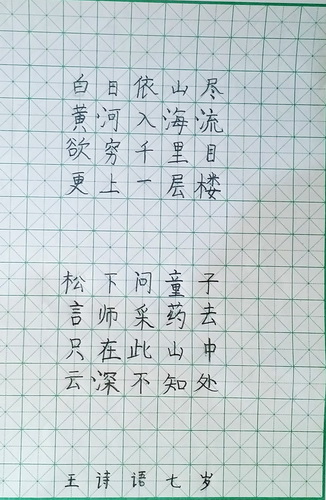 白日依山尽
黄河入海流
欲穷千里目
更上一层楼
松下问童子
言师采药去
只在此山中
云深不知处
王诗语七岁